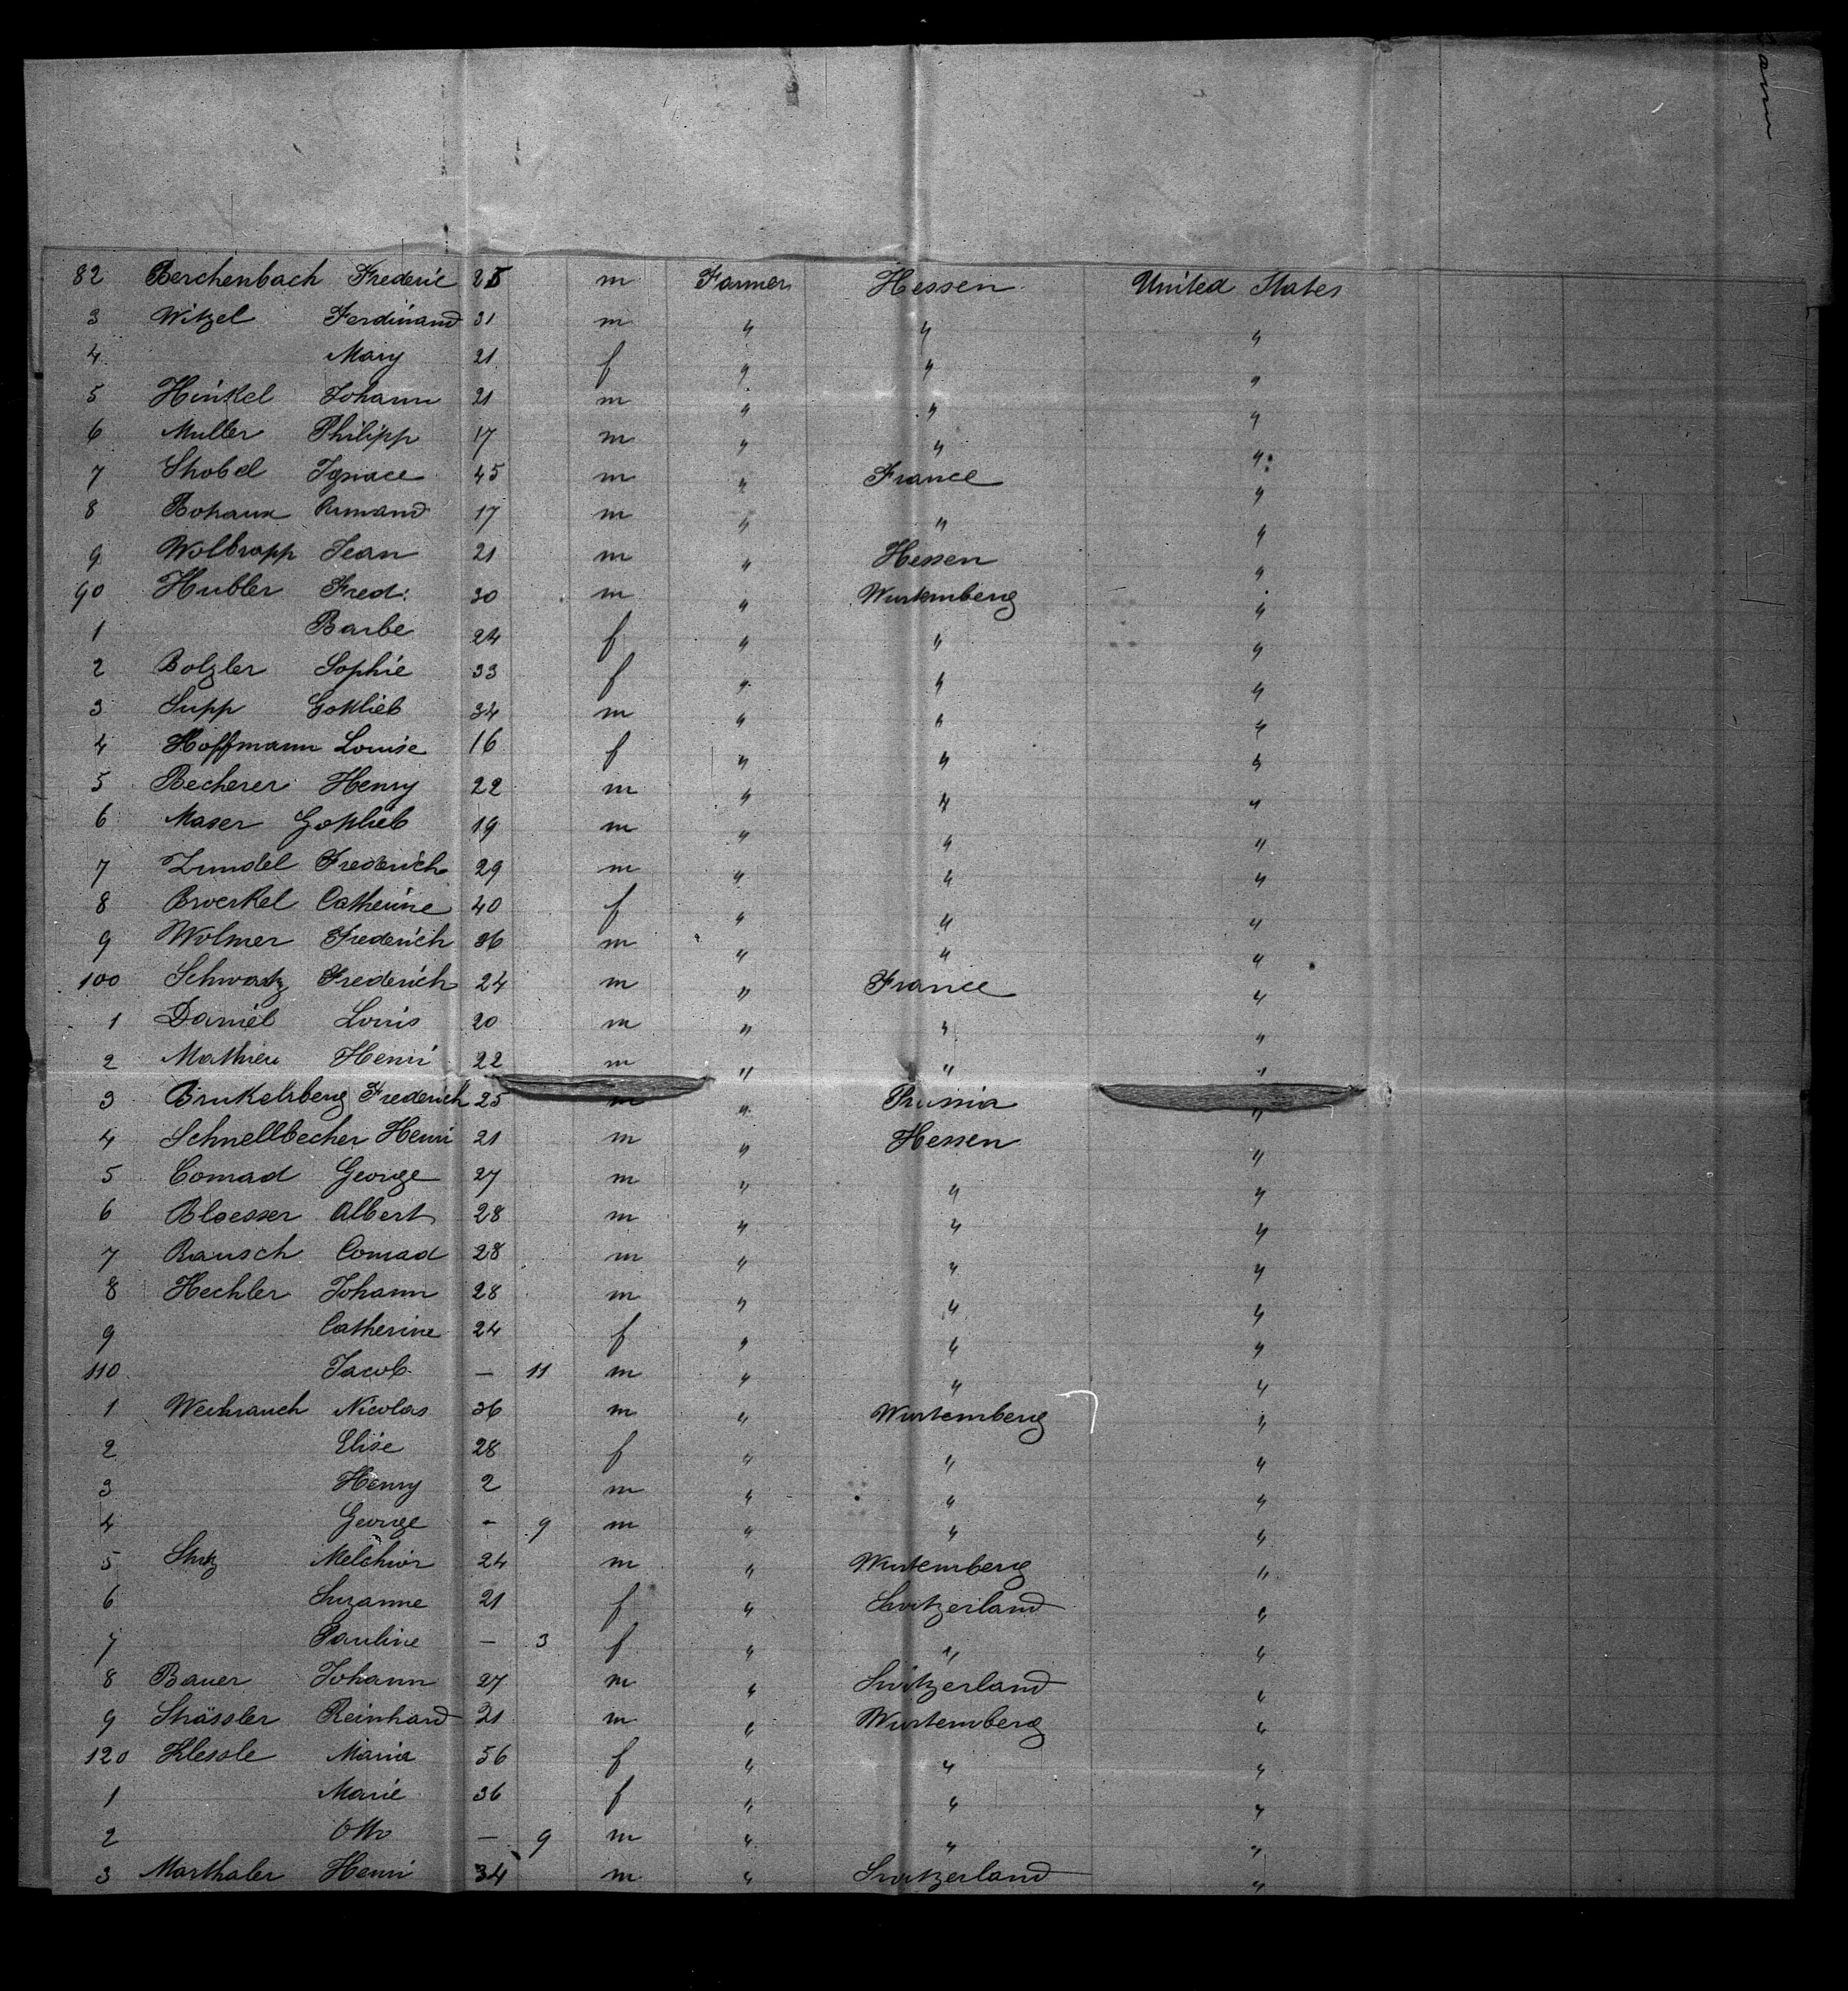 82 Berchenbach Frederic 25 m Farmer Hessen United States
3 Witzel Ferdinand 31 m " " "
4 Mary 21 f " " "
5 Hinkel Johann 21 m " " "
6 Muller Philipp 17 m " " "
7 Shobel Ignace 45 m " France "
8 Armand 17 m " " "
9 Wolbrapp Jean 21 m " Hessen "
90 Hubler Fred: 30 m " Wurtemberg "
1 Barbe 24 f " " "
2 Bolzler Sophie 33 f " " "
3 Supp Gottlieb 34 m " " "
4 Hoffmann Louise 16 f " " "
5 Becherer Henry 22 m " " "
6 Maser Gottlieb 19 m " " "
7 Zundel Frederich 29 m " " "
8 Broerkel Catherine 40 f " " "
9 Wolmer Frederich 36 m " " "
100 Schwartz Frederich 24 m " France "
1 Daniel Louis 20 m " " "
2 Mathieu Henri 22 m " " "
3 Brukelsberg Frederich 25 m " Prussia "
4 Schnellbecher Henri 21 m " Hessen "
5 Conrad George 27 m " " "
6 Bloesser Albert 28 m " " "
7 Rausch Conrad 28 m " " "
8 Hechler Johann 28 m " " "
9 Catherine 24 f " " "
110 Jacob — 11 m " " "
1 Weihrauch Nicolas 36 m " Wurtemberg "
2 Elise 28 f " " "
3 Henry 2 m " " "
4 George - 9 m " " "
5 Stutz Melchior 24 m " Wurtemberg "
6 Suzanne 21 f " Switzerland "
7 Pauline — 3 f " " "
8 Bauer Johann 27 m " Switzerland "
9 Strässler Reinhard 21 m " Wurtemberg "
120 Klessle Maria 56 f " " "
1 Marie 36 f " " "
2 Otto — 9 m " " "
3 Marthaler Henri 34 m " Switzerland "